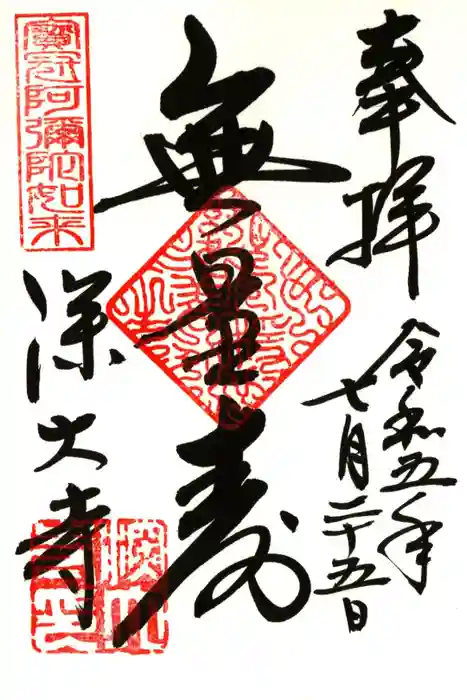 奉拝
令和五年
七月二十五日
無量寿
寳冠阿彌陀如来
深大寺